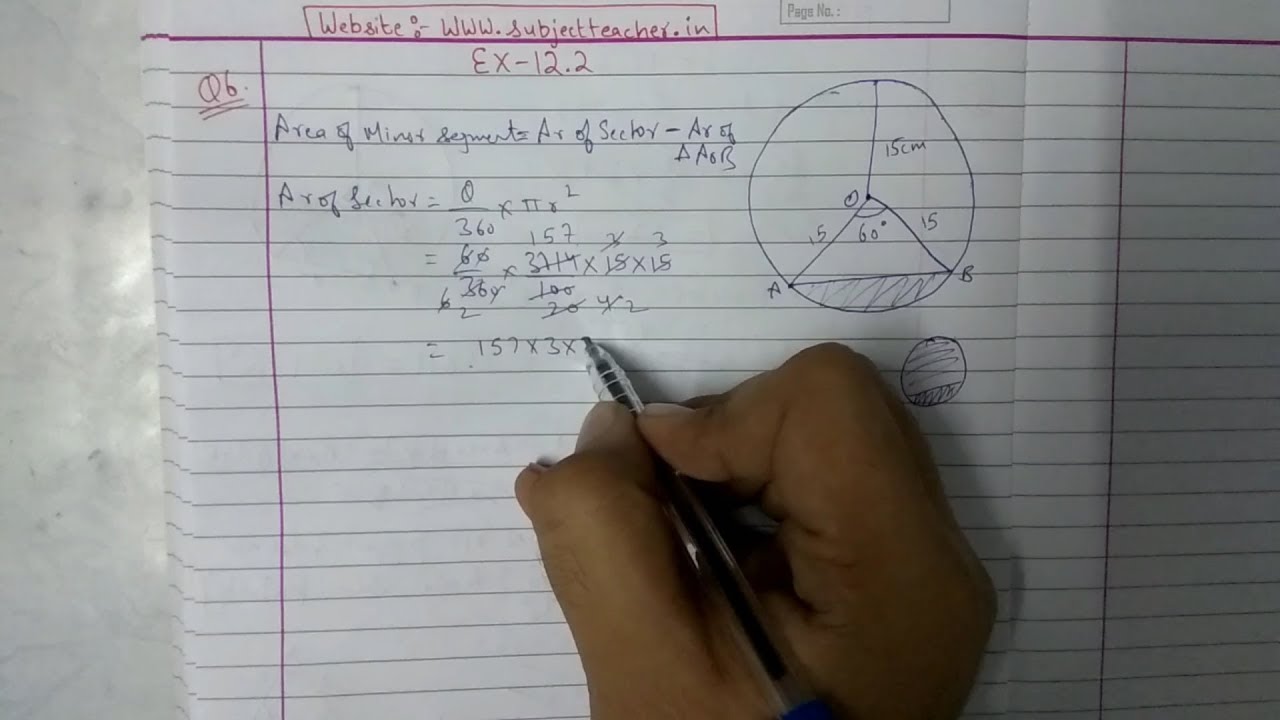 Page No. :
Website :- WWW.subjectteacher.in
EX-12.2
Q6.
Area of Minor segment = Ar of Sector - Ar of
ΔAOB
Ar of Sector = θ/360 × πr²
157 3 3
= 60/360 × 314/100 × 15 × 15
6 2 20 4 2
= 157 × 3 ×
15cm
O
60°
15
15
A
B